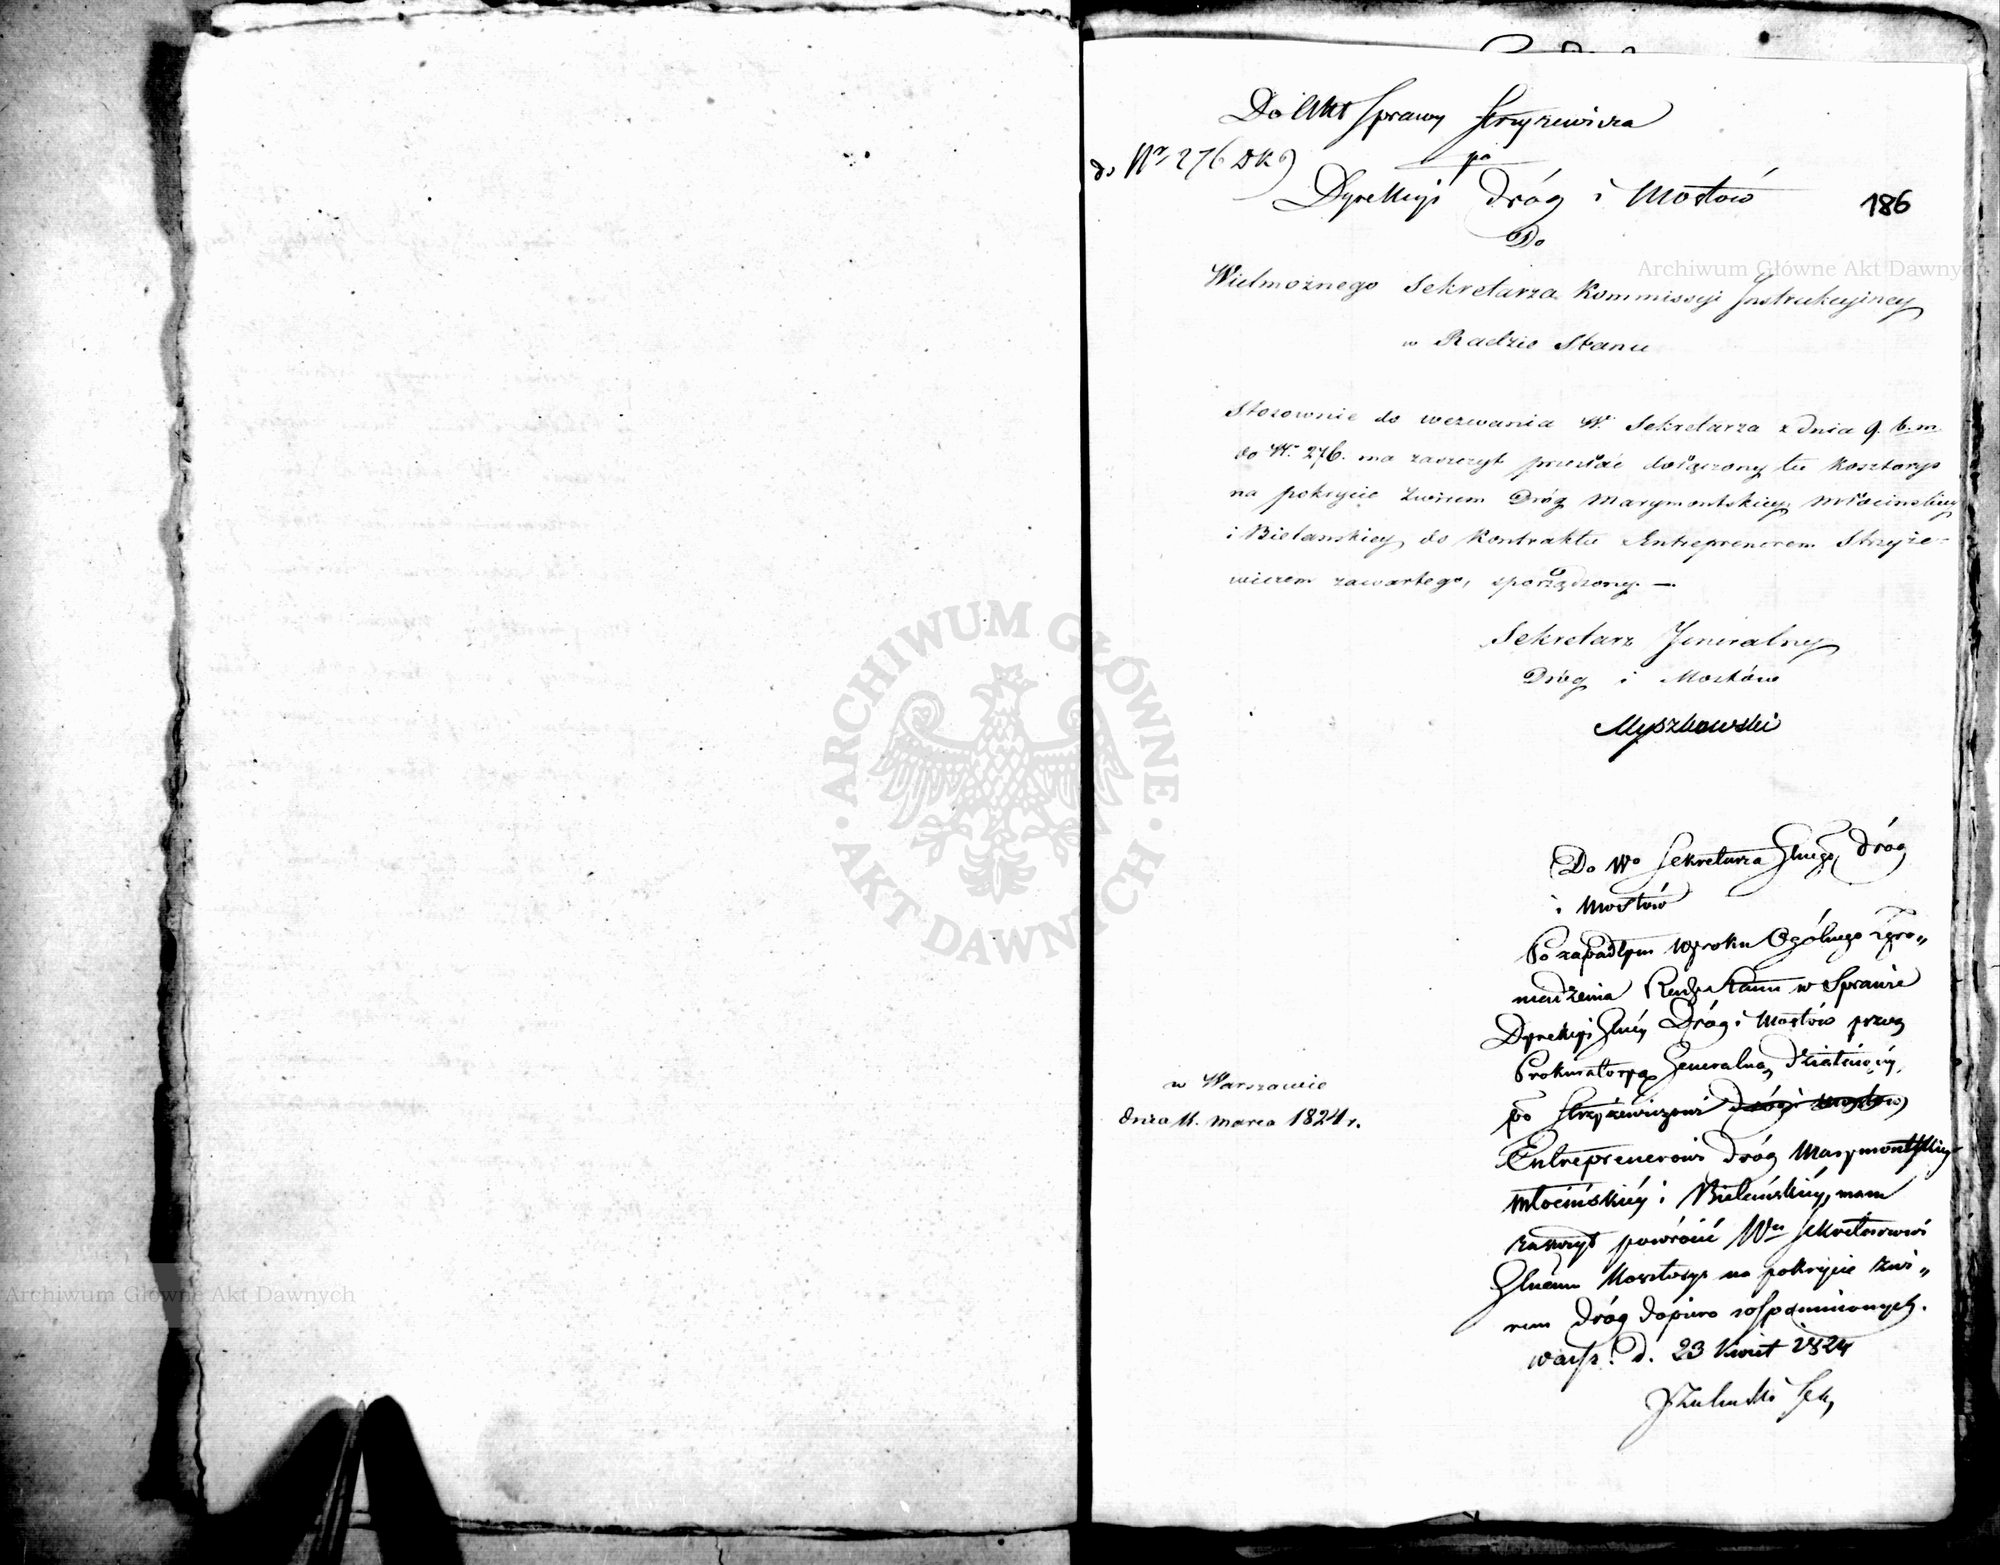 Do Akt Sprawy Strzyżewicza
do Nr 276 DK
pa
Dyrekcyi Dróg i Mostów
186
Do
Wielmożnego Sekretarza Kommissyi Instrukcyiney
w Radzie Stanu
Stosownie do wezwania W. Sekretarza z dnia 9. b. m.
do Nr. 276. ma zaszczyt przesłać dołączony tu kosztorys
na pokrycie żwirem Dróg Marymontskiey Młocinskiey
i Bielanskiey do kontraktu Entreprenerem Strzyże-
wiczem zawartego, sporządzony. —
Sekretarz Jeneralny
Dróg i Mostów
Myszkowski
Do Wo Sekretarza Glnego Dróg
i Mostów
Po zapadłym wyroku Ogólnego zgro„
madzenia Rady Stanu w Sprawie
Dyrekcyi Glnéy Dróg i Mostów przez
Prokuratoryą Generalną działaiącéy,
po Strzyżewiczowi Dróg i Mostów
Entreprenerowi Dróg Marymontskiey
Młocińskiéy i Bielańskiéy, mam
zaszczyt powrócić Wu Sekretarzowi
Glnemu Kosztorys na pokrycie żwi„
rem dróg dopiero wspomnionych.
Warsz. d. 23 Kwiet 1824
w Warszawie
dnia 11. marca 1824 r.
Archiwum Główne Akt Dawnych
ARCHIWUM GŁÓWNE
AKT DAWNYCH
Archiwum Główne Akt Dawnych